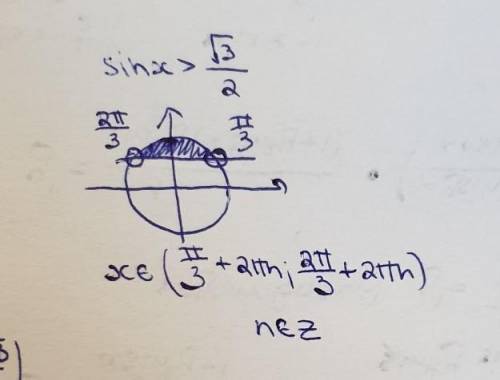 sinx > √3/2
2π/3 π/3
x∈(π/3 + 2πn; 2π/3 + 2πn)
n∈Z